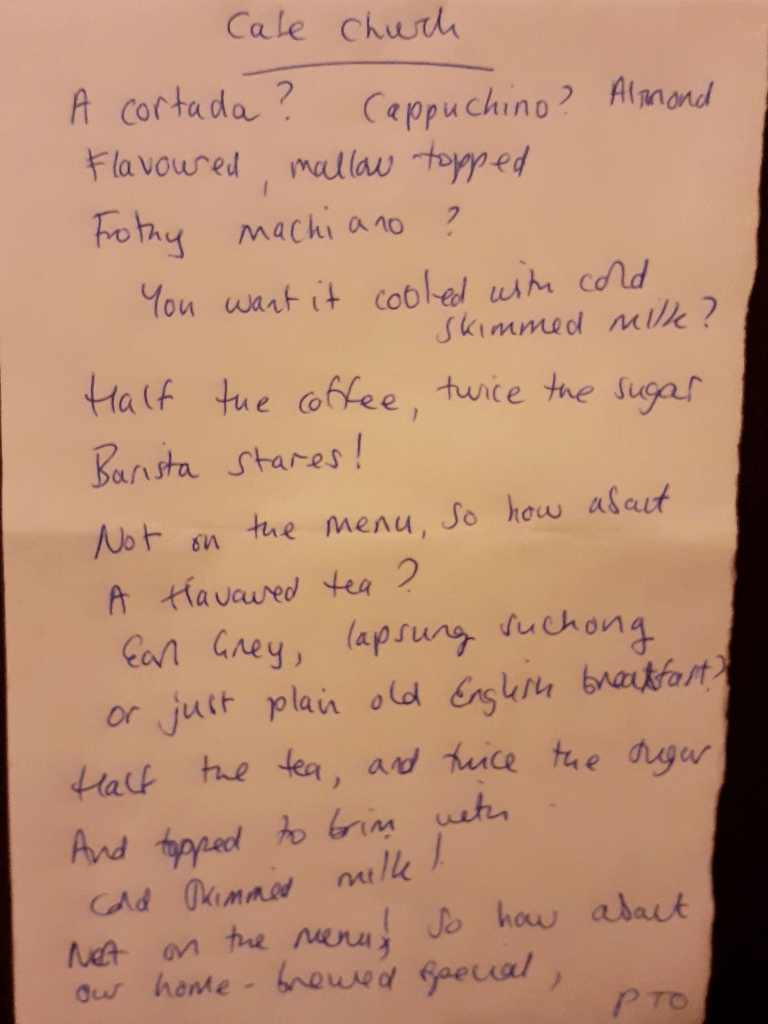 Cafe Church
A cortada? Cappuchino? Almond
Flavoured, mallow topped
Frothy machiano?
You want it cooled with cold
skimmed milk?
Half the coffee, twice the sugar
Barista stares!
Not on the menu, so how about
A flavoured tea?
Earl Grey, lapsung suchong
or just plain old English breakfast?
Half the tea, and twice the sugar
And topped to brim with
cold skimmed milk!
Not on the menu! So how about
our home-brewed special,
PTO